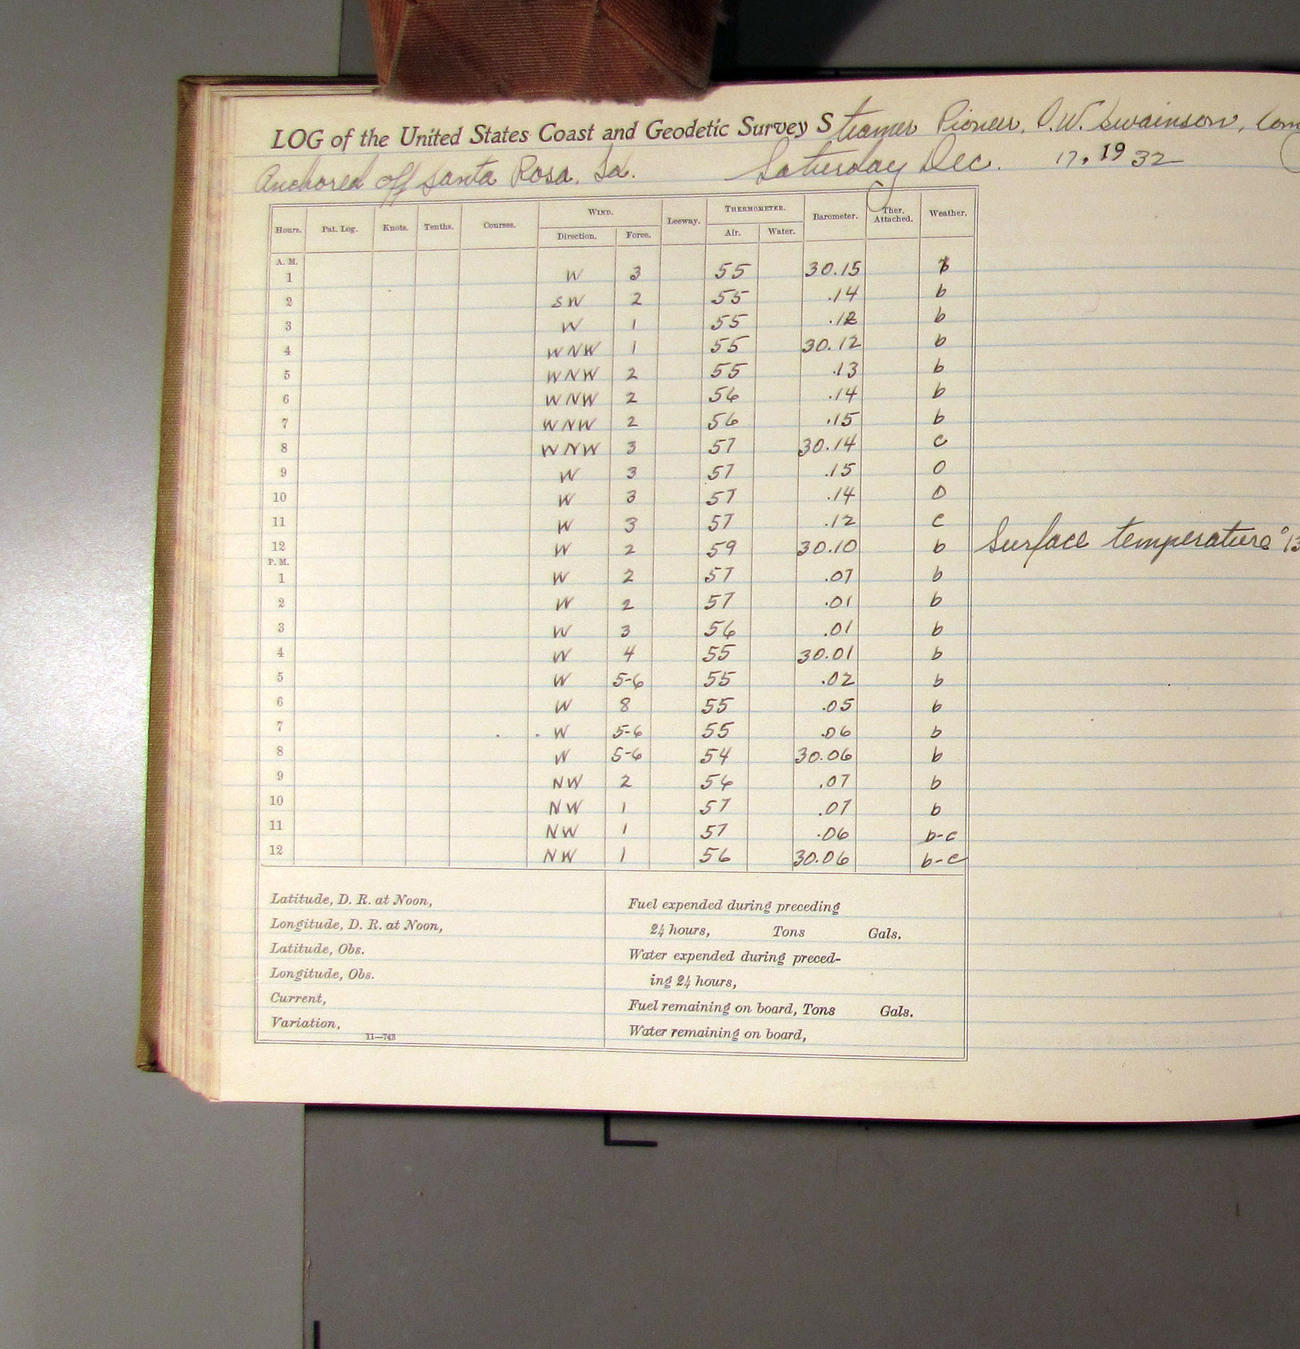 LOG of the United States Coast and Geodetic Survey Steamer Pioneer, O.W. Swainson, Com
Anchored off Santa Rosa, Id. Saturday Dec. 17, 1932
Hours. Pat. Log. Knots. Tenths. Courses. WIND. Direction. Force. Leeway. THERMOMETER. Air. Water. Barometer. Ther. Attached. Weather.
A. M.
1 W 3 55 30.15 b
2 SW 2 55 .14 b
3 W 1 55 .12 b
4 WNW 1 55 30.12 b
5 WNW 2 55 .13 b
6 WNW 2 56 .14 b
7 WNW 2 56 .15 b
8 WNW 3 57 30.14 c
9 W 3 57 .15 O
10 W 3 57 .14 O
11 W 3 57 .12 c
12 W 2 59 30.10 b Surface temperature
P. M.
1 W 2 57 .07 b
2 W 2 57 .01 b
3 W 3 56 .01 b
4 W 4 55 30.01 b
5 W 5-6 55 .02 b
6 W 8 55 .05 b
7 W 5-6 55 .06 b
8 W 5-6 54 30.06 b
9 NW 2 56 .07 b
10 NW 1 57 .07 b
11 NW 1 57 .06 b-c
12 NW 1 56 30.06 b-c
Latitude, D. R. at Noon,
Longitude, D. R. at Noon,
Latitude, Obs.
Longitude, Obs.
Current,
Variation,
11—743
Fuel expended during preceding
24 hours, Tons Gals.
Water expended during preced-
ing 24 hours,
Fuel remaining on board, Tons Gals.
Water remaining on board,